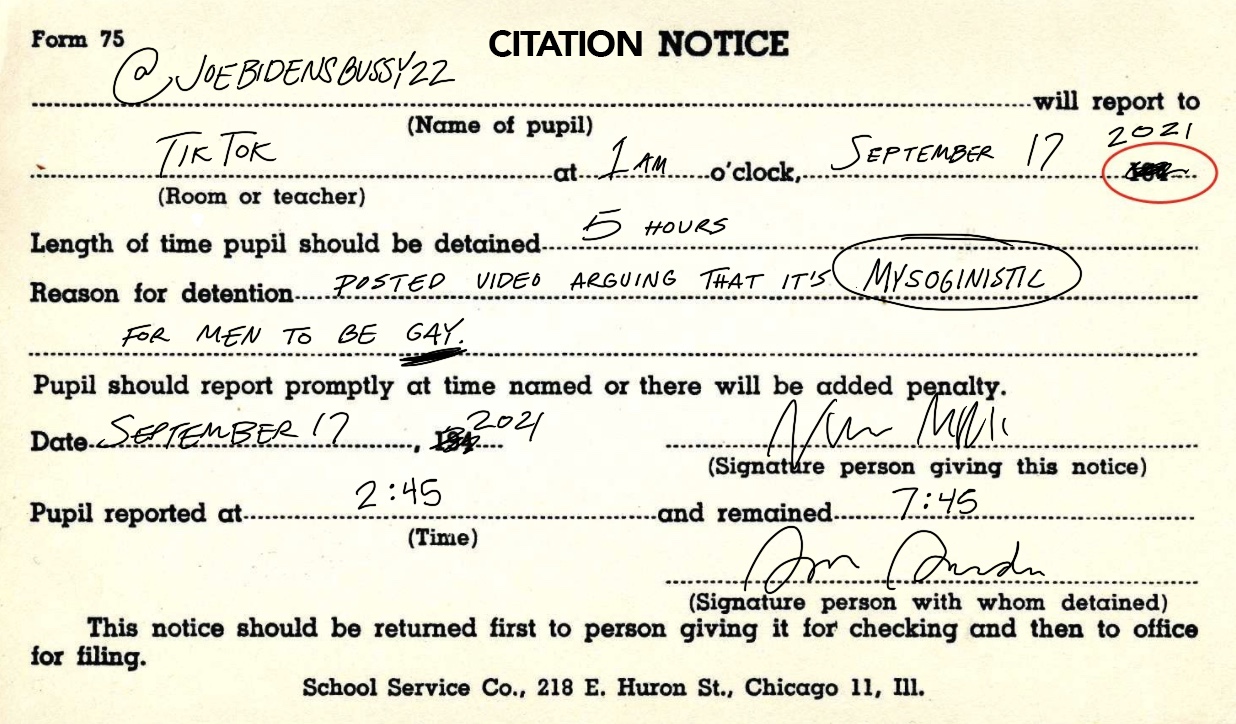 Form 75
CITATION NOTICE
@JOEBIDENSBUSSY22
will report to
(Name of pupil)
2021
TIKTOK at 1 AM o'clock, SEPTEMBER 17
(Room or teacher)
Length of time pupil should be detained 5 HOURS
Reason for detention POSTED VIDEO ARGUING THAT IT'S MYSOGINISTIC
FOR MEN TO BE GAY.
Pupil should report promptly at time named or there will be added penalty.
Date SEPTEMBER 17, 2021
(Signature person giving this notice)
Pupil reported at 2:45 and remained 7:45
(Time)
(Signature person with whom detained)
This notice should be returned first to person giving it for checking and then to office
for filing.
School Service Co., 218 E. Huron St., Chicago 11, Ill.